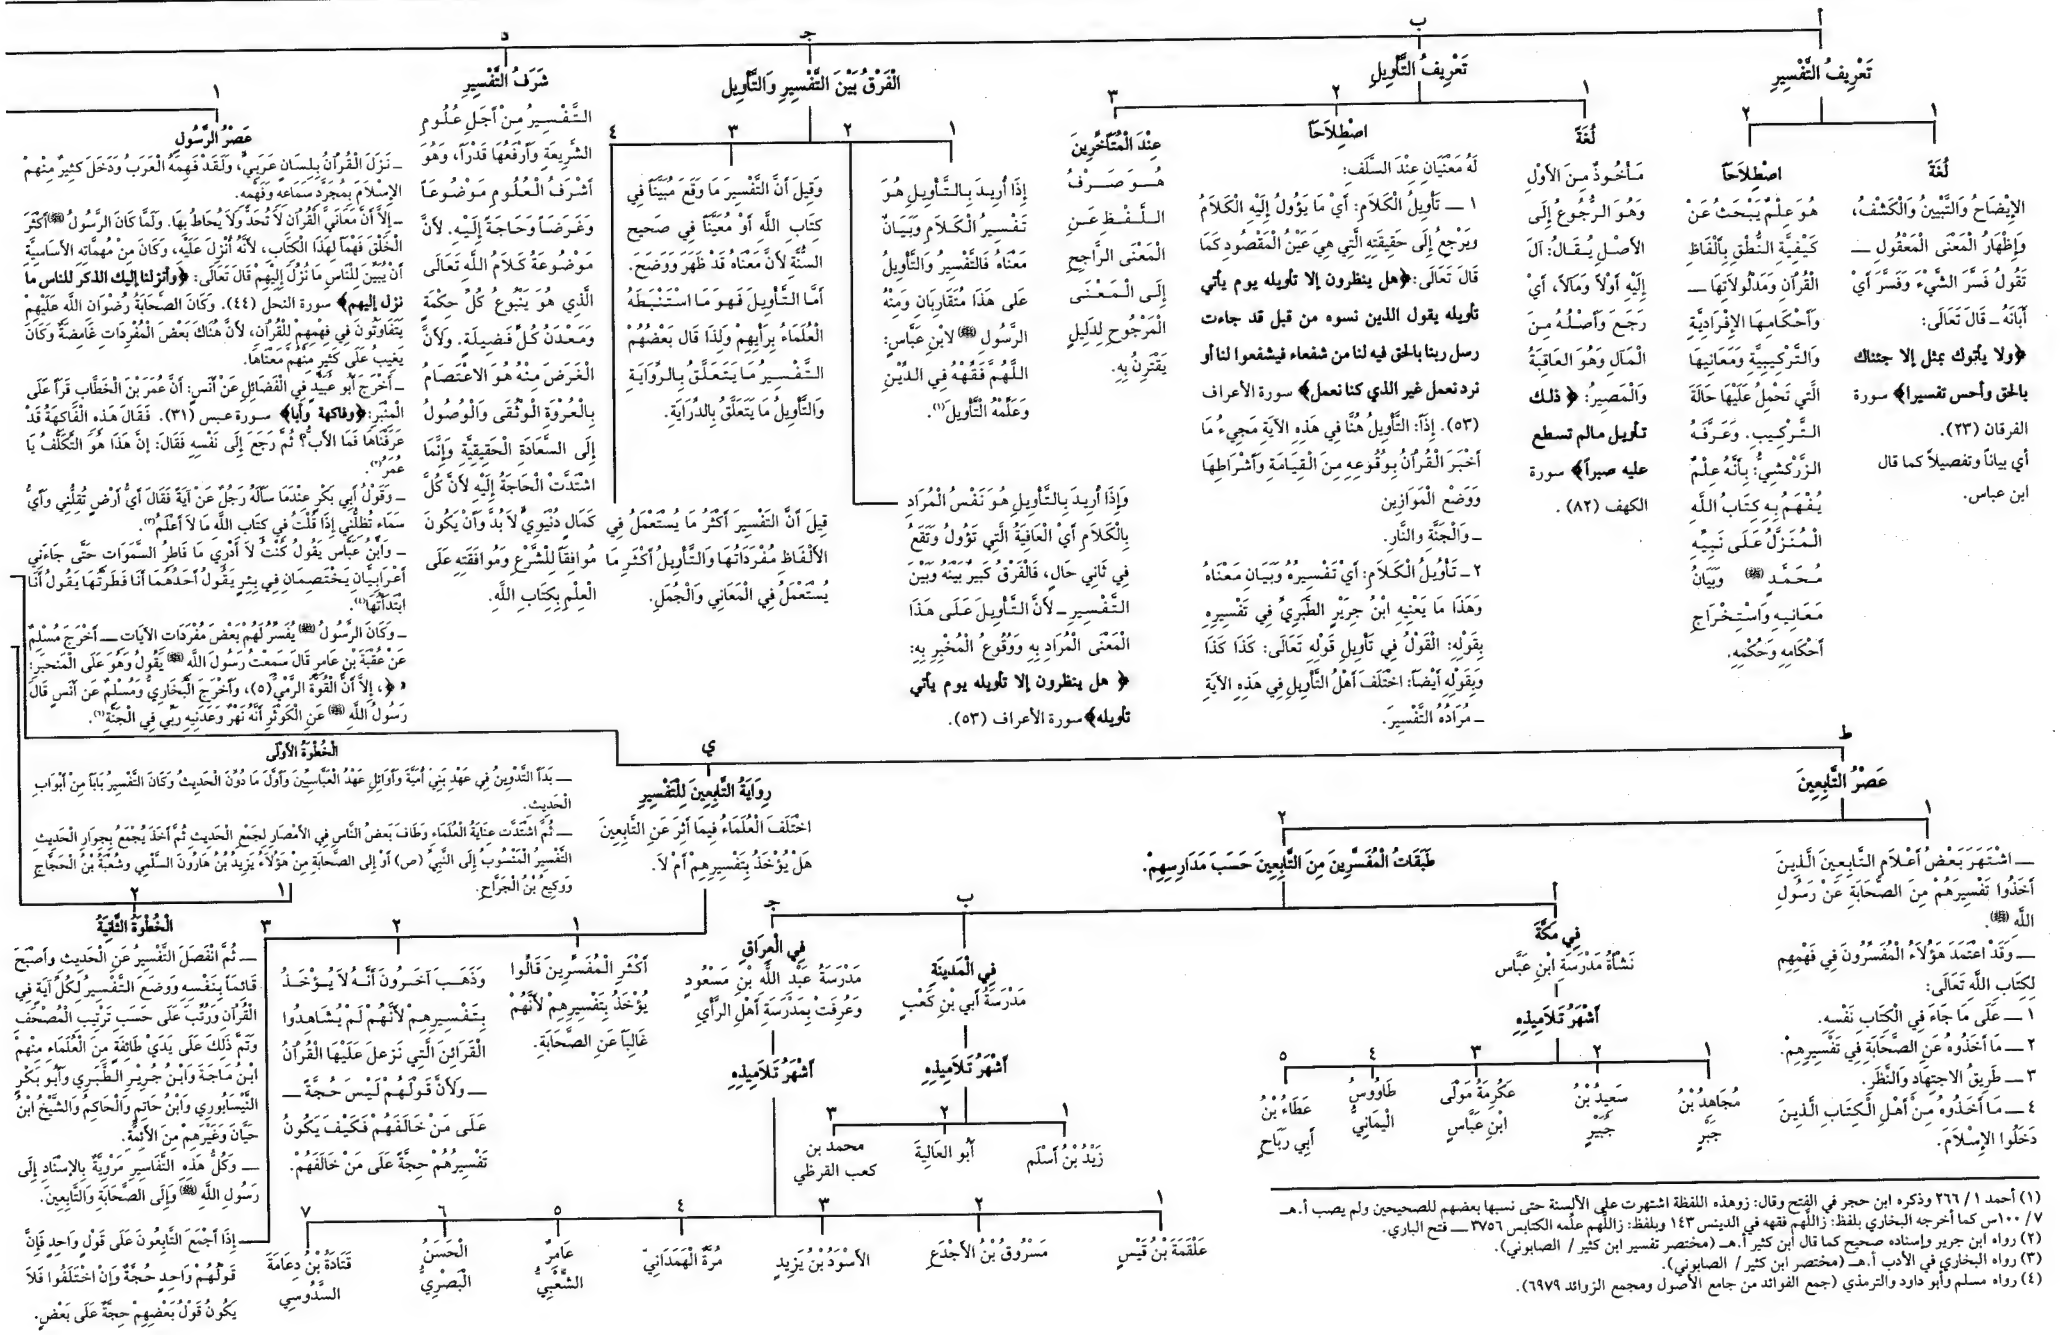 أ
تَعْرِيفُ التَّفْسِيرِ
١
لُغَةً
الإِيْضَاحُ وَالتَّبْيِينُ وَالْكَشْفُ،
وَإِظْهَارُ الْمَعْنَى الْمَعْقُولِ ــ
تَقُولُ فَسَّرَ الشَّيْءَ وَفَسَّرَ أَيْ
أَبَانَهُ ـ قَالَ تَعَالَى:
﴿ولا يأتوك بمثل إلا جئناك
بالحق وأحس تفسيرا﴾ سورة
الفرقان (٢٣).
أي بياناً وتفصيلاً كما قال
ابن عباس.
٢
اصْطِلاَحاً
هُوَ عِلْمٌ يَبْحَثُ عَنْ
كَيْفِيَّةِ النُّطْقِ بِأَلْفَاظِ
القُرْآنِ وَمَدْلُولاَتِهَا ــ
وَأَحْكَامِهَا الإِفْرَادِيَّةِ
وَالتَّرْكِيبِيَّةِ وَمَعَانِيهَا
الَّتِي تَحْمِلُ عَلَيْهَا حَالَةَ
التَّرْكِيبِ. وَعَرَّفَهُ
الزَّرْكَشِيُّ: بِأَنَّهُ عِلْمٌ
يُفْهَمُ بِهِ كِتَابُ اللَّهِ
الْمُنَزَّلُ عَلَى نَبِيِّهِ
مُحَمَّدٍ ﷺ وَبَيَانُ
مَعَانِيهِ وَاسْتِخْرَاجِ
أَحْكَامِهِ وَحُكْمِهِ.
ب
تَعْرِيفُ التَّأْوِيلِ
١
لُغَةً
مَأْخُوذٌ مِنَ الأَوْلِ
وَهُوَ الرُّجُوعُ إِلَى
الأَصْلِ يُقَالُ: آلَ
إِلَيْهِ أَوْلاً وَمَآلاً، أَيْ
رَجَعَ وَأَصْلُهُ مِنَ
الْمَآلِ وَهُوَ العَاقِبَةُ
وَالْمَصِيرُ: ﴿ذلك
تأويل مالم تسطع
عليه صبراً﴾ سورة
الكهف (٨٢) .
٢
اصْطِلاَحاً
لَهُ مَعْنَيَانِ عِنْدَ السَّلَفِ:
١ ــ تَأْوِيلُ الْكَلاَمِ: أَيْ مَا يَؤُولُ إِلَيْهِ الْكَلاَمُ
وَيَرْجِعُ إِلَى حَقِيقَتِهِ الَّتِي هِيَ عَيْنُ الْمَقْصُودِ كَمَا
قَالَ تَعَالَى:﴿هل ينظرون إلا تأويله يوم يأتي
تأويله يقول الذين نسوه من قبل قد جاءت
رسل ربنا بالحق فيه لنا من شفعاء فيشفعوا لنا أو
نرد نعمل غير الذي كنا نعمل﴾ سورة الأعراف
(٥٣). إِذَاً: التَّأْوِيلُ هُنَّا فِي هَذِهِ الآيَةِ مَجِيءُ مَا
أَخْبَرَ الْقُرْآنُ بِوُقُوعِهِ مِنَ الْقِيَامَةِ وَأَشْرَاطِهَا
وَوَضْعِ الْمَوَازِينِ
ـ وَالْجَنَّةِ وَالنَّارِ.
٢ ـ تَأْوِيلُ الْكَلاَمِ: أَيْ تَفْسِيرُهُ وَبَيَانِ مَعْنَاهُ
وَهَذَا مَا يَعْنِيهِ ابْنُ جَرِيْرٍ الطَّبَرِيُّ فِي تَفْسِيرِهِ
بِقَوْلِهِ: الْقَوْلُ فِي تَأْوِيلِ قَوْلِهِ تَعَالَى: كَذَا كَذَا
وَبِقَوْلِهِ أَيْضَاً: اخْتَلَفَ أَهْلُ التَّأْوِيلِ فِي هَذِهِ الآيَةِ
ـ مُرَادُهُ التَّفْسِيرَ.
٣
عِنْدَ الْمُتَأَخِّرِينَ
هُوَ صَرْفُ
اللَّفْظِ عَنِ
الْمَعْنَى الرَّاجِحِ
إِلَى الْمَعْنَى
الْمَرْجُوحِ لِدَلِيلٍ
يَقْتَرِنُ بِهِ.
جـ
الْفَرْقُ بَيْنَ التَّفْسِيرِ وَالتَّأْوِيلِ
١
إِذَا أُرِيدَ بِالتَّأْوِيلِ هُوَ
تَفْسِيرُ الْكَلاَمِ وَبَيَانُ
مَعْنَاهُ فَالتَّفْسِيرُ وَالتَّأْوِيلُ
عَلَى هَذَا مُتَقَارِبَانِ وَمِنْهُ
الرَّسُولِ ﷺ لابْنِ عَبَّاسٍ:
اللَّهُمَّ فَقِّهْهُ فِي الدِّيْنِ
وَعَلِّمْهُ التَّأْوِيلَ(١).
٢
وَإِذَا أُرِيدَ بِالتَّأْوِيلِ هُوَ نَفْسُ الْمُرَادِ
بِالْكَلاَمِ أَيْ الْعَاقِبَةُ الَّتِي تَؤُولُ وَتَقَعُ
فِي ثَانِي حَالٍ، فَالْفَرْقُ كَبِيرٌ بَيْنَهُ وَبَيْنَ
التَّفْسِيرِ ــ لأَنَّ التَّأْوِيلَ عَلَى هَذَا
الْمَعْنَى الْمُرَادِ بِهِ وَوُقُوعُ الْمُخْبِرِ بِهِ:
﴿هل ينظرون إلا تأويله يوم يأتي
تأويله﴾ سورة الأعراف (٥٣).
٣
وَقِيلَ أَنَّ التَّفْسِيرَ مَا وَقَعَ مُبَيَّناً فِي
كِتَابِ اللَّهِ أَوْ مُعَيَّناً فِي صَحِيحِ
السُّنَّةِ لأَنَّ مَعْنَاهُ قَدْ ظَهَرَ وَوَضَحَ.
أَمَّا التَّأْوِيلَ فَهُوَ مَا اسْتَنْبَطَهُ
الْعُلَمَاءُ بِرَأْيِهِمْ وَلِذَا قَالَ بَعْضُهُمْ
التَّفْسِيرُ مَا يَتَعَلَّقُ بِالرِّوَايَةِ
وَالتَّأْوِيلُ مَا يَتَعَلَّقُ بِالدِّرَايَةِ.
٤
قِيلَ أَنَّ التَفْسِيرَ أَكْثَرُ مَا يُسْتَعْمَلُ فِي
الأَلْفَاظِ مُفْرَدَاتُهَا وَالتَّأْوِيلُ أَكْثَرِ مَا
يُسْتَعْمَلُ فِي الْمَعَانِي وَالْجُمَلِ.
د
شَرَفُ التَّفْسِيرِ
التَّفْسِيرُ مِنْ أَجَلِ عُلُومِ
الشَّرِيعَةِ وَأَرْفَعُهَا قَدْرَاً، وَهُوَ
أَشْرَفُ الْعُلُومِ مَوْضُوعَاً
وَغَرَضَاً وَحَاجَةً إِلَيْهِ. لأَنَّ
مَوْضُوعَهُ كَلاَمُ اللَّهِ تَعَالَى
الَّذِي هُوَ يَنْبُوعُ كُلِّ حِكْمَةٍ
وَمَعْدَنُ كُلِّ فَضِيلَةٍ. وَلأَنَّ
الْغَرَضَ مِنْهُ هُوَ الاعْتِصَامُ
بِالْعُرْوَةِ الْوُثْقَى وَالْوُصُولُ
إِلَى السَّعَادَةِ الْحَقِيقِيَّةِ وَإِنَّمَا
اشْتَدَّتْ الْحَاجَةُ إِلَيْهِ لأَنَّ كُلَّ
كَمَالٍ دُنْيَوِيٍّ لاَبُدَّ وَأَنْ يَكُونَ
مُوافِقَاً لِلشَّرْعِ وَمُوَافَقَتِهِ عَلَى
الْعِلْمِ بِكِتَابِ اللَّهِ.
١
عَصْرُ الرَّسُولِ
ـ نَزَلَ الْقُرْآنُ بِلِسَانٍ عَرَبِيٍّ، وَلَقَدْ فَهِمَهُ الْعَرَبُ وَدَخَلَ كَثِيرٌ مِنْهُمْ
الإِسْلاَمَ بِمُجَرَّدِ سَمَاعِهِ وَفَهْمِهِ.
ـ إِلاَّ أَنَّ مَعَانِيَ الْقُرْآنِ لاَ تُحَدُّ وَلاَ يُحَاطُ بِهَا. وَلَمَّا كَانَ الرَّسُولُ ﷺ أَكْثَرَ
الْخَلْقِ فَهْمَاً لِهَذَا الْكِتَابِ، لأَنَّهُ أُنْزِلَ عَلَيْهِ، وَكَانَ مِنْ مُهِمَّاتِهِ الأَسَاسِيَّةِ
أَنْ يُبَيِّنَ لِلنَّاسِ مَا نُزِّلَ إِلَيْهِمْ قَالَ تَعَالَى: ﴿وأنزلنا إليك الذكر للناس ما
نزل إليهم﴾ سورة النحل (٤٤). وَكَانَ الصَّحَابَةُ رِضْوَانِ اللَّهِ عَلَيْهِمْ
يَتَفَاوَتُونَ فِي فَهْمِهِمْ لِلْقُرْآنِ، لأَنَّ هُنَاكَ بَعْضَ الْمُفْرَدَاتِ غَامِضَةٌ وَكَانَ
يَغِيبُ عَلَى كَثِيرٍ مِنْهُمْ مَعْنَاهَا.
ـ أَخْرَجَ أَبُو عُبَيْدٍ فِي الْفَضَائِلِ عَنْ أَنَسٍ: أَنَّ عُمَرَ بْنَ الْخَطَّابِ قَرَأَ عَلَى
الْمِنْبَرِ:﴿وفاكهة وأبا﴾ سورة عبس (٣١). فَقَالَ هَذِهِ الْفَاكِهَةُ قَدْ
عَرَفْنَاهَا فَمَا الأَبُّ؟ ثُمَّ رَجَعَ إِلَى نَفْسِهِ فَقَالَ: إِنَّ هَذَا هُوَ التَّكَلُّفُ يَا
عُمَرُ(٢).
ـ وَقَوْلُ أَبِي بَكْرٍ عِنْدَمَا سَأَلَهُ رَجُلٌ عَنْ آيَةً فَقَالَ أَيُّ أَرْضٍ تُقِلُّنِي وَأَيُّ
سَمَاءٍ تُظِلُّنِي إِذَا قُلْتُ فِي كِتَابِ اللَّهِ مَا لاَ أَعْلَمُ(٣).
ـ وَابْنُ عَبَّاسٍ يَقُولُ كُنْتُ لاَ أَدْرِي مَا فَاطِرُ السَّمَوَاتِ حَتَّى جَاءَنِي
أَعْرَابِيَّانِ يَخْتَصِمَانِ فِي بِئْرٍ يَقُولُ أَحَدُهُمَا أَنَا فَطَرْتُهَا يَقُولُ أَنَا
ابْتَدَأْتُهَا(٤).
ـ وَكَانَ الرَّسُولُ ﷺ يُفَسِّرُ لَهُمْ بَعْضَ مُفْرَدَاتِ الآيَاتِ ــ أَخْرَجَ مُسْلِمٌ
عَنْ عُقْبَةَ بْنِ عَامِرٍ قَالَ سَمِعْتُ رَسُولَ اللَّهِ ﷺ يَقُولُ وَهُوَ عَلَى الْمَنْحبَرِ:
﴿، إِلاَّ أَنَّ الْقُوَّةَ الرَّمْيُ(٥)، وَأَخْرَجَ الْبُخَارِيُّ وَمُسْلِمٌ عَنْ أَنَسٍ قَالَ
رَسُولُ اللَّهِ ﷺ عَنِ الْكَوْثَرِ أَنَّهُ نَهْرٌ وَعَدَنِيهِ رَبِّي فِي الْجَنَّةِ(٦).
ط
عَصْرُ التَّابِعِينَ
١
ــ اشْتَهَرَ بَعْضُ أَعْلاَمِ التَّابِعِينَ الَّذِينَ
أَخَذُوا تَفْسِيرَهُمْ مِنَ الصَّحَابَةِ عَنْ رَسُولِ
اللَّهِ ﷺ.
ــ وَقَدْ اعْتَمَدَ هَؤُلاَءُ الْمُفَسِّرُونَ فِي فَهْمِهِمِ
لِكِتَابِ اللَّهِ تَعَالَى:
١ ــ عَلَى مَا جَاءَ فِي الْكِتَابِ نَفْسِهِ.
٢ ــ مَا أَخَذُوهُ عَنِ الصَّحَابَةِ فِي تَفْسِيرِهِمْ.
٣ ــ طَرِيقُ الاجتِهَادِ وَالنَّظَرِ.
٤ ــ مَا أَخَذُوهُ مِنْ أَهْلِ الْكِتَابِ الَّذِينَ
دَخَلُوا الإِسْلاَمَ.
٢
طَبَقَاتُ الْمُفَسِّرِينَ مِنَ التَّابِعِينَ حَسَبَ مَدَارِسِهِمْ.
أ
فِي مَكَّةَ
نَشْأَةُ مَدْرَسَةِ ابْنِ عَبَّاسٍ
أَشْهَرُ تَلاَمِيذِهِ
١
مُجَاهِدُ بْنُ
جَبْرٍ
٢
سَعِيدُ بْنُ
جُبَيْرٍ
٣
عِكْرِمَةُ مَوْلَى
ابْنِ عَبَّاسٍ
٤
طَاوُوسُ
الْيَمَانِيُّ
٥
عَطَاءُ بْنُ
أَبِي رَبَاحٍ
ب
فِي الْمَدِينَةِ
مَدْرَسَةُ أُبَي بْنِ كَعْبٍ
أَشْهَرُ تَلاَمِيذِهِ
١
زَيْدُ بْنُ أَسْلَم
٢
أَبُو العَالِيةِ
٣
محمد بن
كعب القرظي
جـ
فِي الْعِرَاقِ
مَدْرَسَةُ عَبْدِ اللَّهِ بْنِ مَسْعُودٍ
وَعُرِفَتْ بِمَدْرَسَةِ أَهْلِ الرَّأْيِ
أَشْهَرُ تَلاَمِيذِهِ
١
عَلْقَمَةَ بْنُ قَيْسٍ
٢
مَسْرُوقُ بْنُ الأَجْدَعِ
٣
الأَسْوَدُ بْنُ يَزِيدٍ
٤
مُرَّةُ الْهَمَدَانِيّ
٥
عَامِرٌ
الشَّعْبِيُّ
٦
الْحَسَنُ
الْبَصْرِيُّ
٧
قَتَادَةُ بْنُ دِعَامَةَ
السَّدُوسِي
ي
رِوَايَةُ التَّابِعِينَ لِلتَّفْسِيرِ
اخْتَلَفَ الْعُلَمَاءُ فِيمَا أُثِرَ عَنِ التَّابِعِينَ
هَلْ يُؤْخَذُ بِتَفْسِيرِهِمْ أَمْ لاَ.
١
أَكْثَرِ الْمُفَسِّرِينَ قَالُوا
يُؤْخَذُ بِتَفْسِيرِهِمْ لأَنَّهُمْ
غَالِبَاً عَنِ الصَّحَابَةِ.
٢
وَذَهَبَ آخَرُونَ أَنَّهُ لاَ يُؤْخَذُ
بِتَفْسِيرِهِمْ لأَنَّهُمْ لَمْ يُشَاهِدُوا
الْقَرَائِنَ الَّتِي نَزِعلَ عَلَيْهَا الْقُرْآنُ
ــ وَلأَنَّ قَوْلَهُمْ لَيْسَ حُجَّةً ــ
عَلَى مَنْ خَالَفَهُمْ فَكَيْفَ يَكُونُ
تَفْسِيرُهُمْ حجَّةً عَلَى مَنْ خَالَفَهُمْ.
٣
ــ إِذَا أَجْمَعَ التَّابِعُونَ عَلَى قَوْلٍ وَاحِدٍ فَإِنَّ
قَوْلُهُمْ وَاحِدٍ حُجَّةٌ وَإِنْ اخْتَلَفُوا فَلاَ
يَكُونُ قَوْلُ بَعْضِهِمْ حجَّةٌ عَلَى بَعْضٍ.
الْخُطْوَةُ الأَوْلَى
ــ بَدَأَ التَّدْوِينُ فِي عَهْدِ بَنِي أُمَيَّةَ وَأَوَائِلِ عَهْدُ الْعَبَّاسِيِّينَ وَأَوَّلَ مَا دُوِّنَ الْحَدِيثُ وَكَانَ التَّفْسِيرُ بَابَاً مِنْ أَبْوَابِ
الْحَدِيثِ.
ــ ثُمَّ اشْتَدَّت عِنَايَةُ الْعُلَمَاءِ وَطَافَ بَعْضُ النَّاسِ فِي الأَمْصَارِ لِجَمْعِ الْحَدِيثِ ثُمَّ أَخَذَ يُجْمَعُ بِجِوَارِ الْحَدِيثِ
التَّفْسِيرُ الْمَنْسُوبُ إِلَى النَّبِيِّ (ص) أَوْ إِلَى الصَّحَابَةِ مِنْ هَؤُلاَءِ يَزِيدُ بْنُ هَارُونَ السَّلْمِي وَشُعْبَةُ بْنُ الْحَجَّاجِ
وَوَكِيعُ بْنُ الْجَرَّاحِ.
١
٢
الْخُطْوَةُ الثَّانِيَةُ
ــ ثُمَّ انْفَصَلَ التَّفْسِيرُ عَنِ الْحَدِيثِ وَأَصْبَحَ
قَائِمَاً بِنَفْسِهِ وَوَضَعَ التَّفْسِيرُ لِكُلِّ آيَةٍ فِي
الْقُرْآنِ وَرُتِّبَ عَلَى حَسَبِ تَرْتِيبِ الْمُصْحَفِ
وَتَمَّ ذَلِكَ عَلَى يَدَيْ طَائِفَةٍ مِنَ الْعُلَمَاءِ مِنْهُمْ
ابْنُ مَاجَةَ وَابْنُ جُرِيْرِ الطَّبَرِي وَأَبُو بَكْرِ
النَّيْسَابُورِي وَابْنُ حَاتِمٍ وَالْحَاكِمُ وَالشَّيْخُ ابْنُ
حَيَّانَ وَغَيْرَهِمْ مِنَ الأَئِمَّةِ.
ــ وَكُلُّ هَذِهِ التَّفَاسِيرِ مَرْوِيَّةٌ بِالإِسْنَادِ إِلَى
رَسُولِ اللَّهِ ﷺ وَإِلَى الصَّحَابَةِ وَالتَّابِعِينَ.
(١) أحمد ١ / ٢٦٦ وذكره ابن حجر في الفتح وقال: زوهذه اللفظة اشتهرت على الألسنة حتى نسبها بعضهم للصحيحين ولم يصب أ.هـ
٧/ ١٠٠س كما أخرجه البخاري بلفظ: زاللَّهم فقهه في الدينس ١٤٣ وبلفظ: زاللَّهم علّمه الكتابس ٣٧٥٦ ــ فتح الباري.
(٢) رواه ابن جرير وإسناده صحيح كما قال ابن كثير أ.هـ (مختصر تفسير ابن كثير / الصابوني).
(٣) رواه البخاري في الأدب أ.هـ (مختصر ابن كثير / الصابوني).
(٤) رواه مسلم وأبو داود والترمذي (جمع الفوائد من جامع الأصول ومجمع الزوائد ٦٩٧٩).